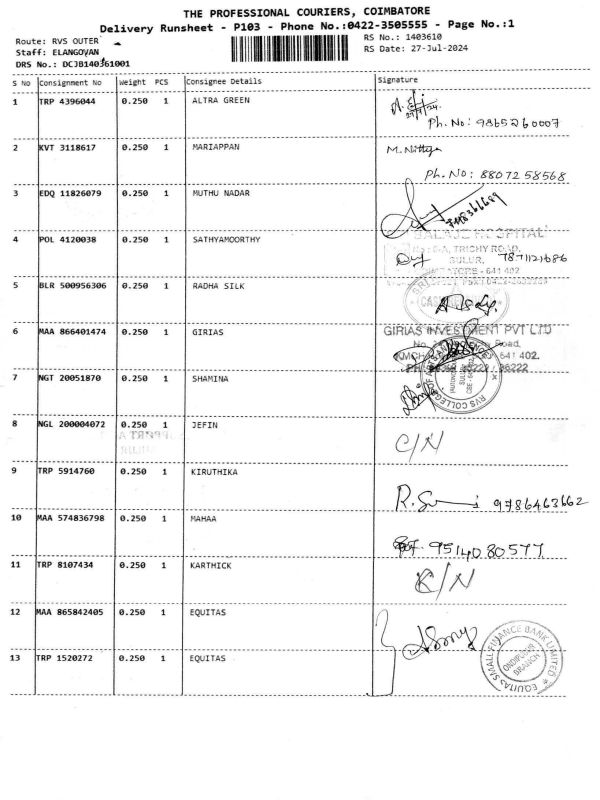 THE PROFESSIONAL COURIERS, COIMBATORE
Delivery Runsheet - P103 - Phone No.:0422-3505555 - Page No.:1
Route: RVS OUTER
RS No.: 1403610
Staff: ELANGOVAN
RS Date: 27-Jul-2024
DRS No.: DCJB140361001
S No Consignment No Weight PCS Consignee Details Signature
1 TRP 4396044 0.250 1 ALTRA GREEN
Ph. No: 9865260007
2 KVT 3118617 0.250 1 MARIAPPAN M. Nithya
Ph. No: 8807258568
3 EDQ 11826079 0.250 1 MUTHU NADAR
HOSPITAL
4 POL 4120038 0.250 1 SATHYAMOORTHY TRICHY ROAD,
SULUR, 7871121686
641 402
5 BLR 500956306 0.250 1 RADHA SILK
6 MAA 866401474 0.250 1 GIRIAS GIRIAS INVESTMENT PVT LTD
Road,
641 402.
7 NGT 20051870 0.250 1 SHAMINA
RVS COLLEGE OF ARTS
SULUR
8 NGL 200004072 0.250 1 JEFIN
C/N
9 TRP 5914760 0.250 1 KIRUTHIKA
9786463662
10 MAA 574836798 0.250 1 MAHAA
9514080577
11 TRP 8107434 0.250 1 KARTHICK
C/N
12 MAA 865842405 0.250 1 EQUITAS
13 TRP 1520272 0.250 1 EQUITAS
EQUITAS SMALL FINANCE BANK LIMITED
ONDIPUDUR
BRANCH